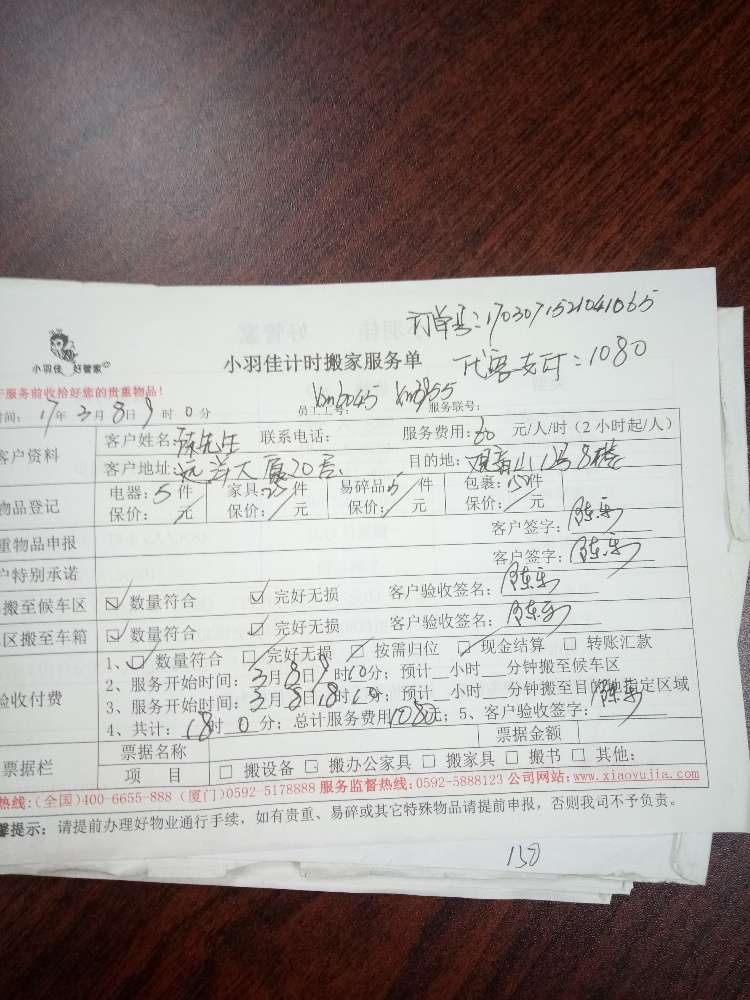 订单号:1703071521041065
小羽佳 好管家
小羽佳计时搬家服务单
代客支付:1080
服务前收拾好您的贵重物品!
时间: 17年3月8日9时0分 员工工号: 服务联号:
客户资料 客户姓名:陈先生 联系电话: 服务费用:60 元/人/时(2小时起/人)
客户地址:远洋大厦20层 目的地:观音山12号8楼
物品登记 电器:5件 家具:件 易碎品5件 包裹:件
保价:/元 保价:/元 保价:/元 保价:/元
重物品申报 客户签字:
户特别承诺 客户签字:
搬至候车区 ☑ 数量符合 ☑ 完好无损 客户验收签名:
区搬至车箱 ☑ 数量符合 ☑ 完好无损 客户验收签名:
验收付费 1、☑ 数量符合 □ 完好无损 □ 按需归位 ☑ 现金结算 □ 转账汇款
2、服务开始时间:3月8日9时0分;预计__小时__分钟搬至候车区
3、服务开始时间:3月8日18时0分;预计__小时__分钟搬至目的地指定区域
4、共计:18时0分;总计服务费用1080元;5、客户验收签字:
票据栏 票据名称 票据金额
项 目 □ 搬设备 □ 搬办公家具 □ 搬家具 □ 搬书 □ 其他:
热线:(全国)400-6655-888 (厦门)0592-5178888 服务监督热线:0592-5888123 公司网站:www.xiaoyujia.com
馨提示:请提前办理好物业通行手续,如有贵重、易碎或其它特殊物品请提前申报,否则我司不予负责。
150